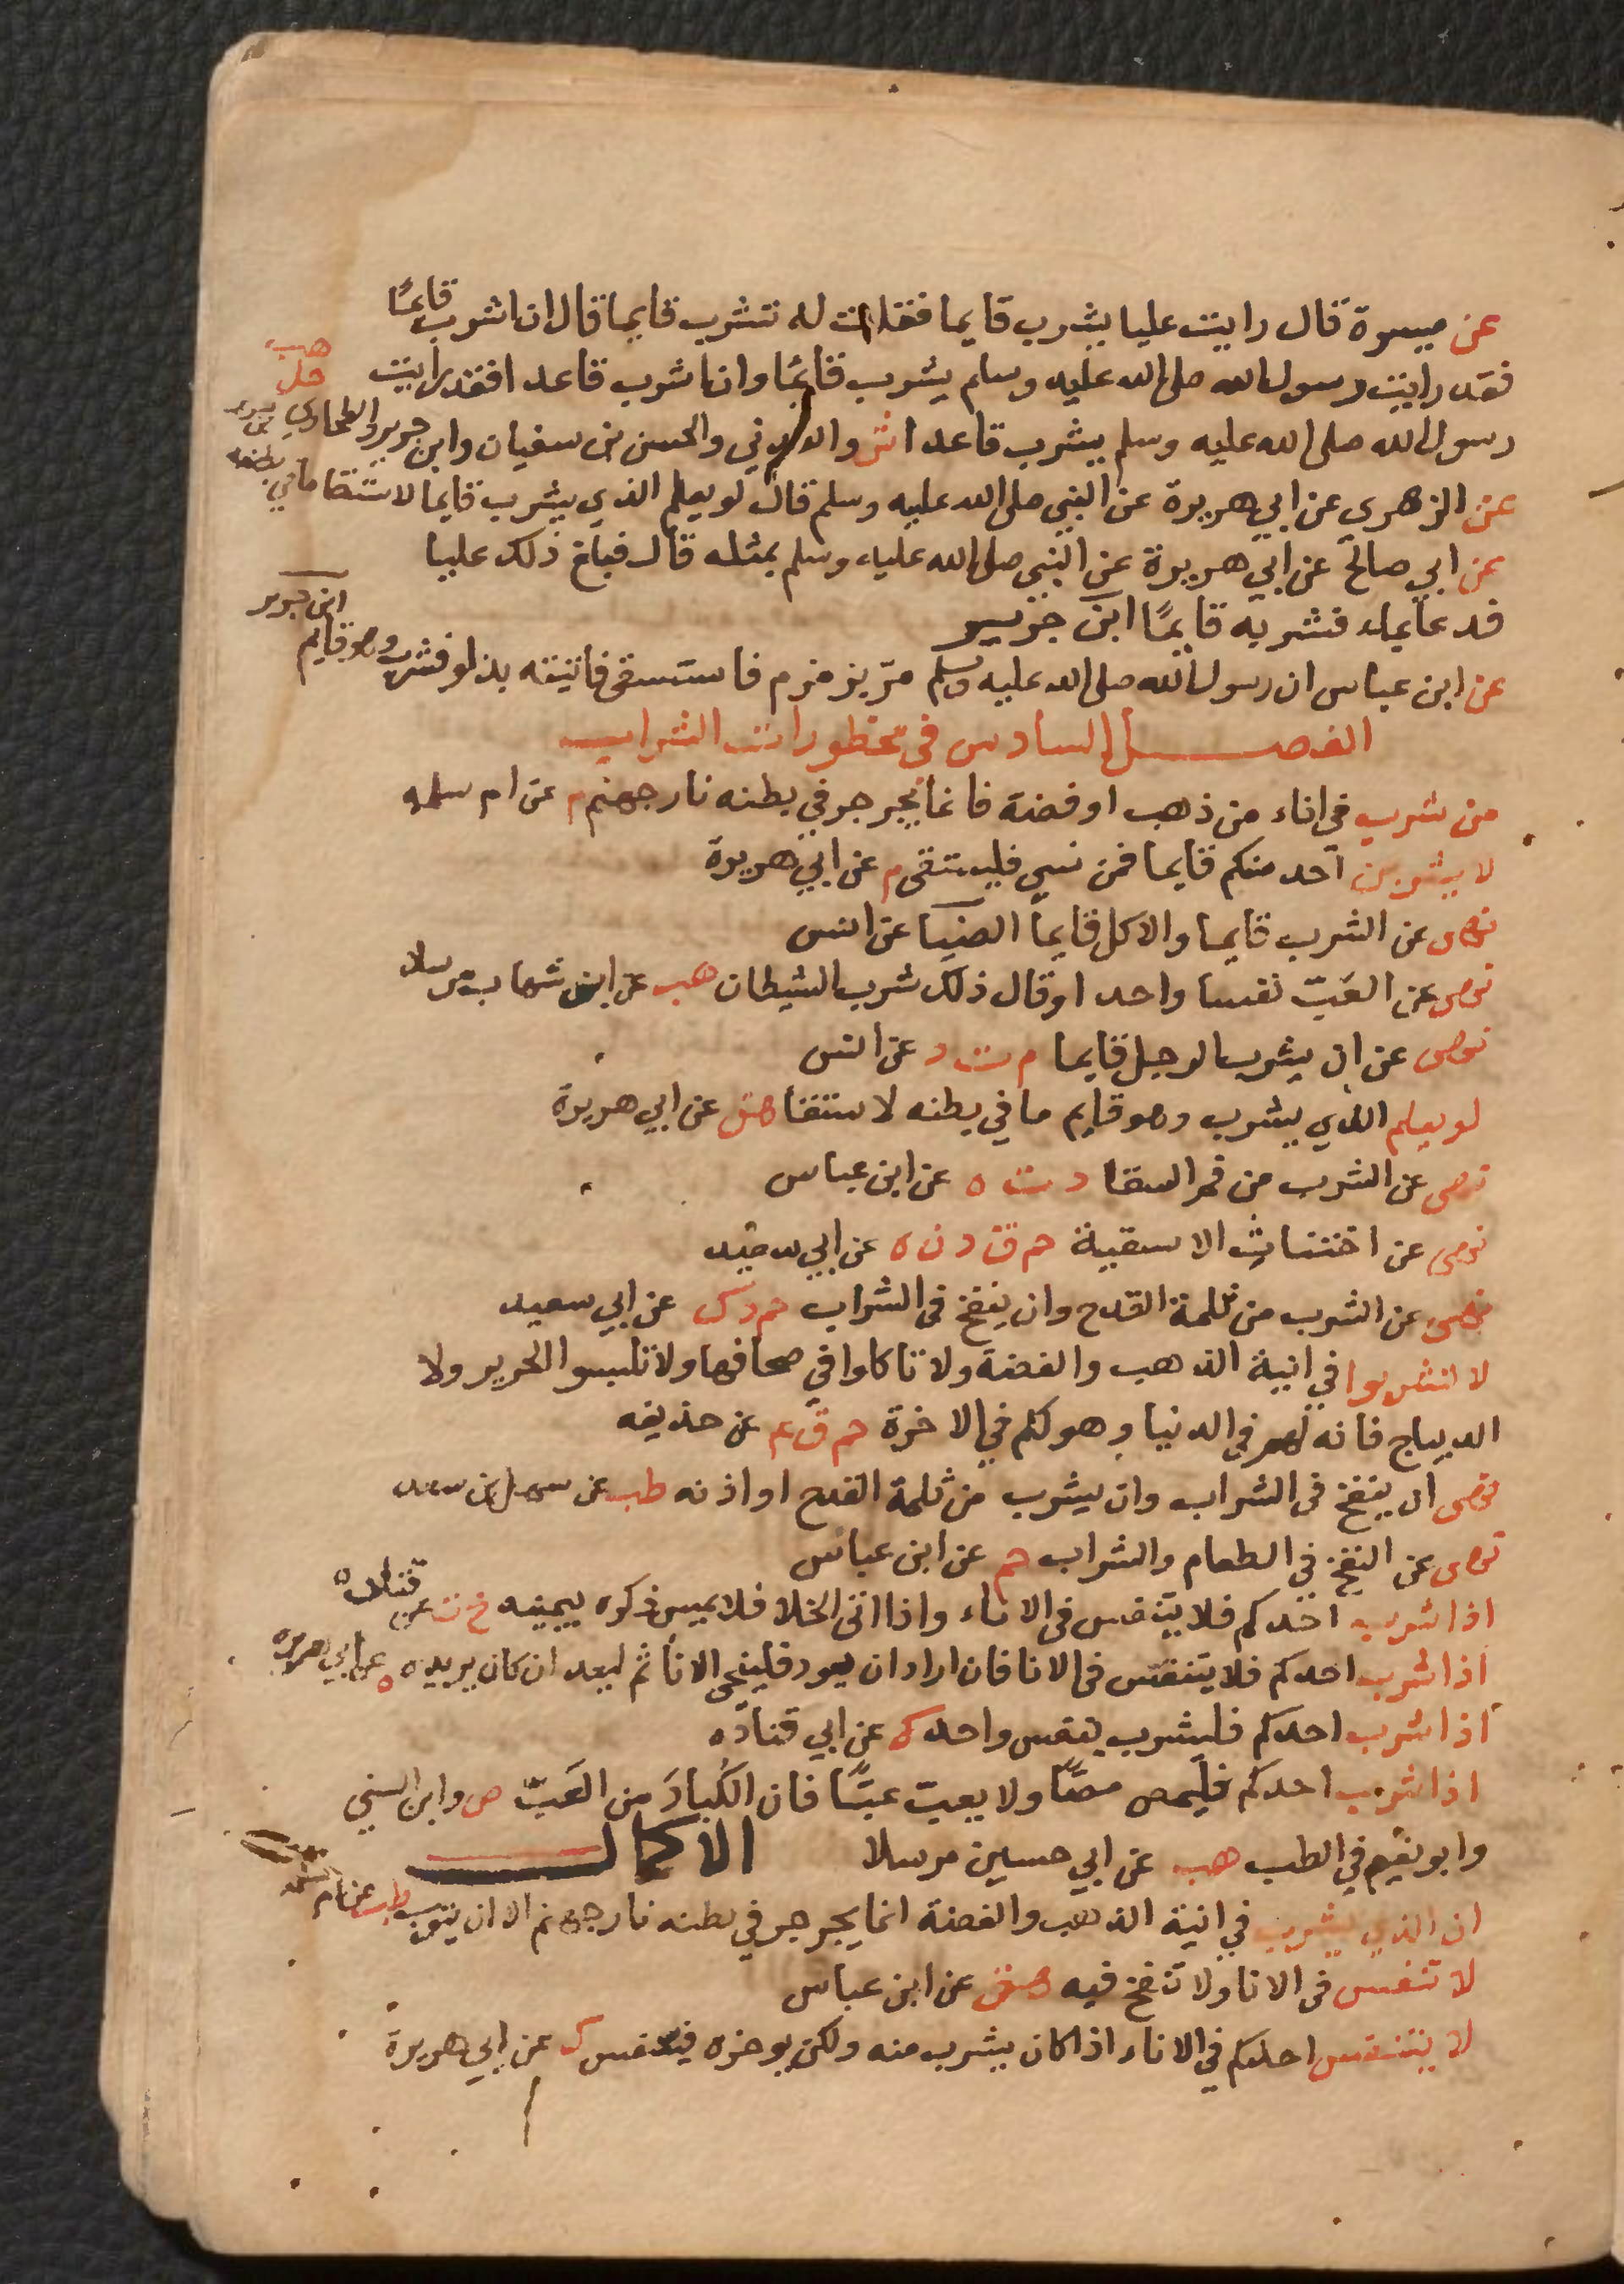 عن ميسرة قال رايت عليا يشرب قايما فقلت له تشرب قايما قال ان اشرب قائمًا
فقد رايت رسول الله صلى الله عليه وسلم يشرب قائمًا وان اشرب قاعدا فقد رايت
هب
حل
رسول الله صلى الله عليه وسلم يشرب قاعدا ش والعدني والحسن بن سفيان وابن جرير والطحاوي
عن الزهري عن ابي هريرة عن النبي صلى الله عليه وسلم قال لو يعلم الذي يشرب قايما لاستقا ما في بطنه
عن ابي صالح عن ابي هريرة عن النبي صلى الله عليه وسلم بمثله قال فبلغ ذلك عليا
فدعا بماء فشربه قايمًا ابن جرير
عن ابن عباس ان رسول الله صلى الله عليه وسلم مرّ بزمزم فاستسقى فاتيته بدلو فشرب وهو قايم
ابن جرير
الفصل السادس في محظورات الشراب
من شرب في اناء من ذهب او فضة فانما يجرجر في بطنه نار جهنم م عن ام سلمه
لا يشربن احد منكم قايما فمن نسي فليستقى م عن ابي هريرة
نهى عن الشرب قايما والاكل قايما الضيا عن انس
نهى عن العَبّ نفسا واحدا وقال ذلك شرب الشيطان هب عن ابن شهاب مرسلا
نهى عن ان يشرب الرجل قايما م ت د عن انس
لو يعلم الذي يشرب وهو قايم ما في بطنه لاستقا هق عن ابي هريرة
نهى عن الشرب من فم السقا د ت ه عن ابن عباس
نهى عن اختناث الاسقية حم ق د ن ه عن ابي سعيد
نهى عن الشرب من ثلمة القدح وان ينفخ في الشراب حم د ك عن ابي سعيد
لا تشربوا في انية الذهب والفضة ولا تاكلوا في صحافها ولا تلبسوا الحرير ولا
الديباج فانه لهم في الدنيا وهو لكم في الاخرة حم ق ع عن حذيفه
نهى ان ينفخ في الشراب وان يشرب من ثلمة القدح او اذنه طب عن سهل بن سعد
نهى عن النفخ في الطعام والشراب حم عن ابن عباس
اذا شرب احدكم فلا يتنفس في الاناء واذا اتى الخلا فلا يمس ذكره بيمينه خ ت عن قتادة
اذا شرب احدكم فلا يتنفس في الانا فان اراد ان يعود فلينحي الانا ثم ليعد ان كان يريد ه عن ابي هريره
اذا شرب احدكم فليشرب بنفس واحد ك عن ابي قتاده
اذا شرب احدكم فليمص مصًّا ولا يعبّ عبًّا فان الكُبادَ من العَبّ ص وابن السني
وابو نعيم في الطب هب عن ابي حسين مرسلا الاكمال
ان الذي يشرب في انية الذهب والفضة انما يجرجر في بطنه نار جهنم الا ان يتوب طب عن ام سلمه
لا تنفس في الانا ولا تنفخ فيه هق عن ابن عباس
لا يتنفس احدكم في الاناء اذا كان يشرب منه ولكن يوخره فيتنفس ك عن ابي هريرة